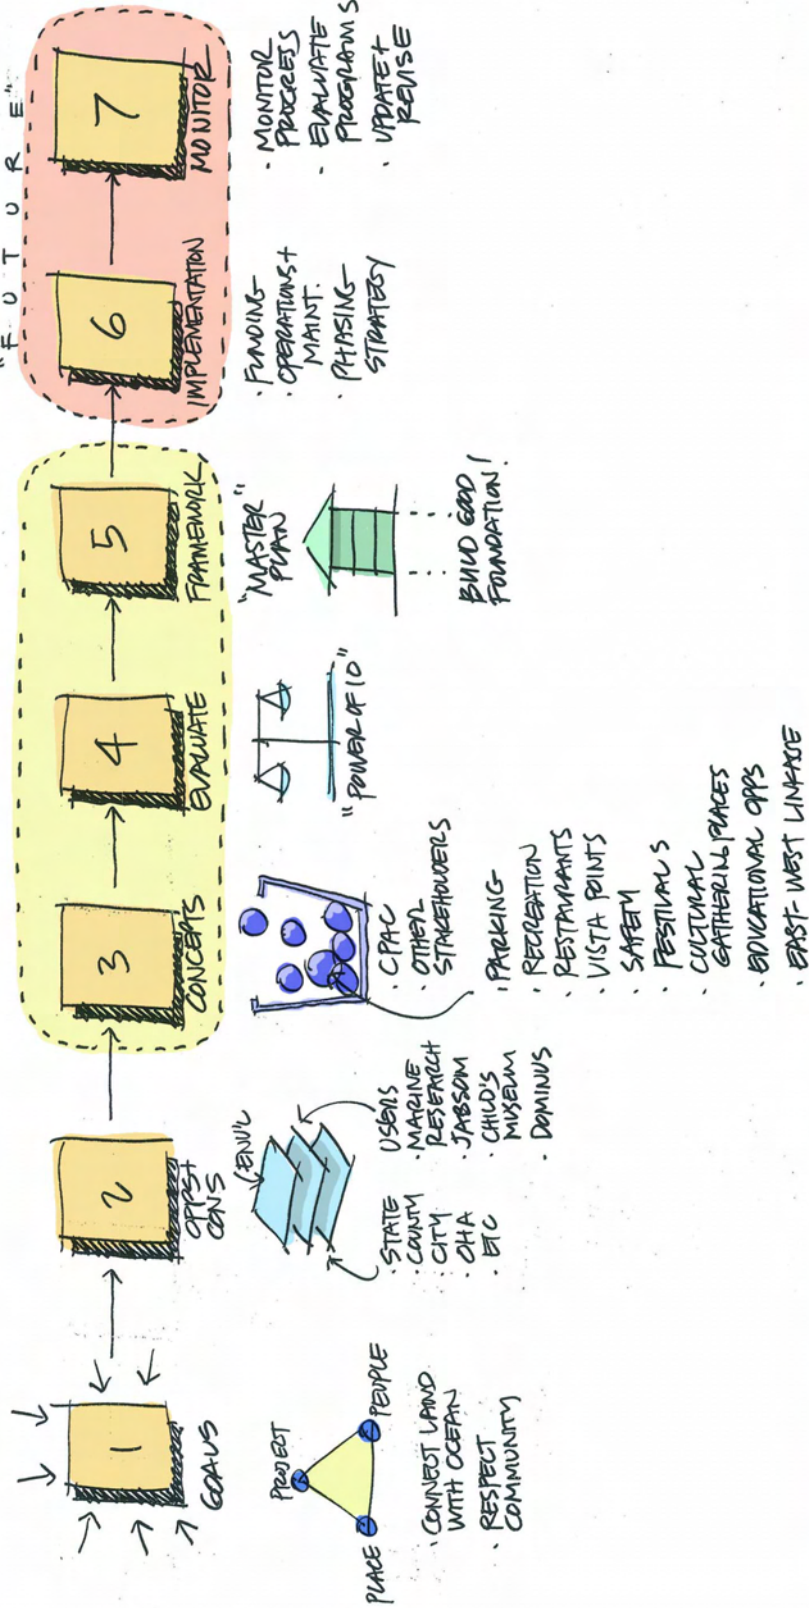 "FUTURE"
1
GOALS
PROJECT
PLACE
PEOPLE
· CONNECT LAND
WITH OCEAN
· RESPECT
COMMUNITY
2
OPPS+
CONS
ENV'L
· STATE
· COUNTY
· CITY
· OHA
· ETC
USERS
· MARINE
RESEARCH
· JABSOM
· CHILD'S
MUSEUM
· DOMINUS
3
CONCEPTS
· CPAC
· OTHER
STAKEHOLDERS
· PARKING
· RECREATION
· RESTAURANTS
· VISTA POINTS
· SAFETY
· FESTIVALS
· CULTURAL
GATHERING PLACES
· EDUCATIONAL OPPS
· EAST-WEST LINKAGE
4
EVALUATE
"POWER OF 10"
5
FRAMEWORK
"MASTER
PLAN"
BUILD GOOD
FOUNDATION!
6
IMPLEMENTATION
· FUNDING
· OPERATIONS+
MAINT.
· PHASING
STRATEGY
7
MONITOR
· MONITOR
PROGRESS
· EVALUATE
PROGRAMS
· UPDATE+
REVISE